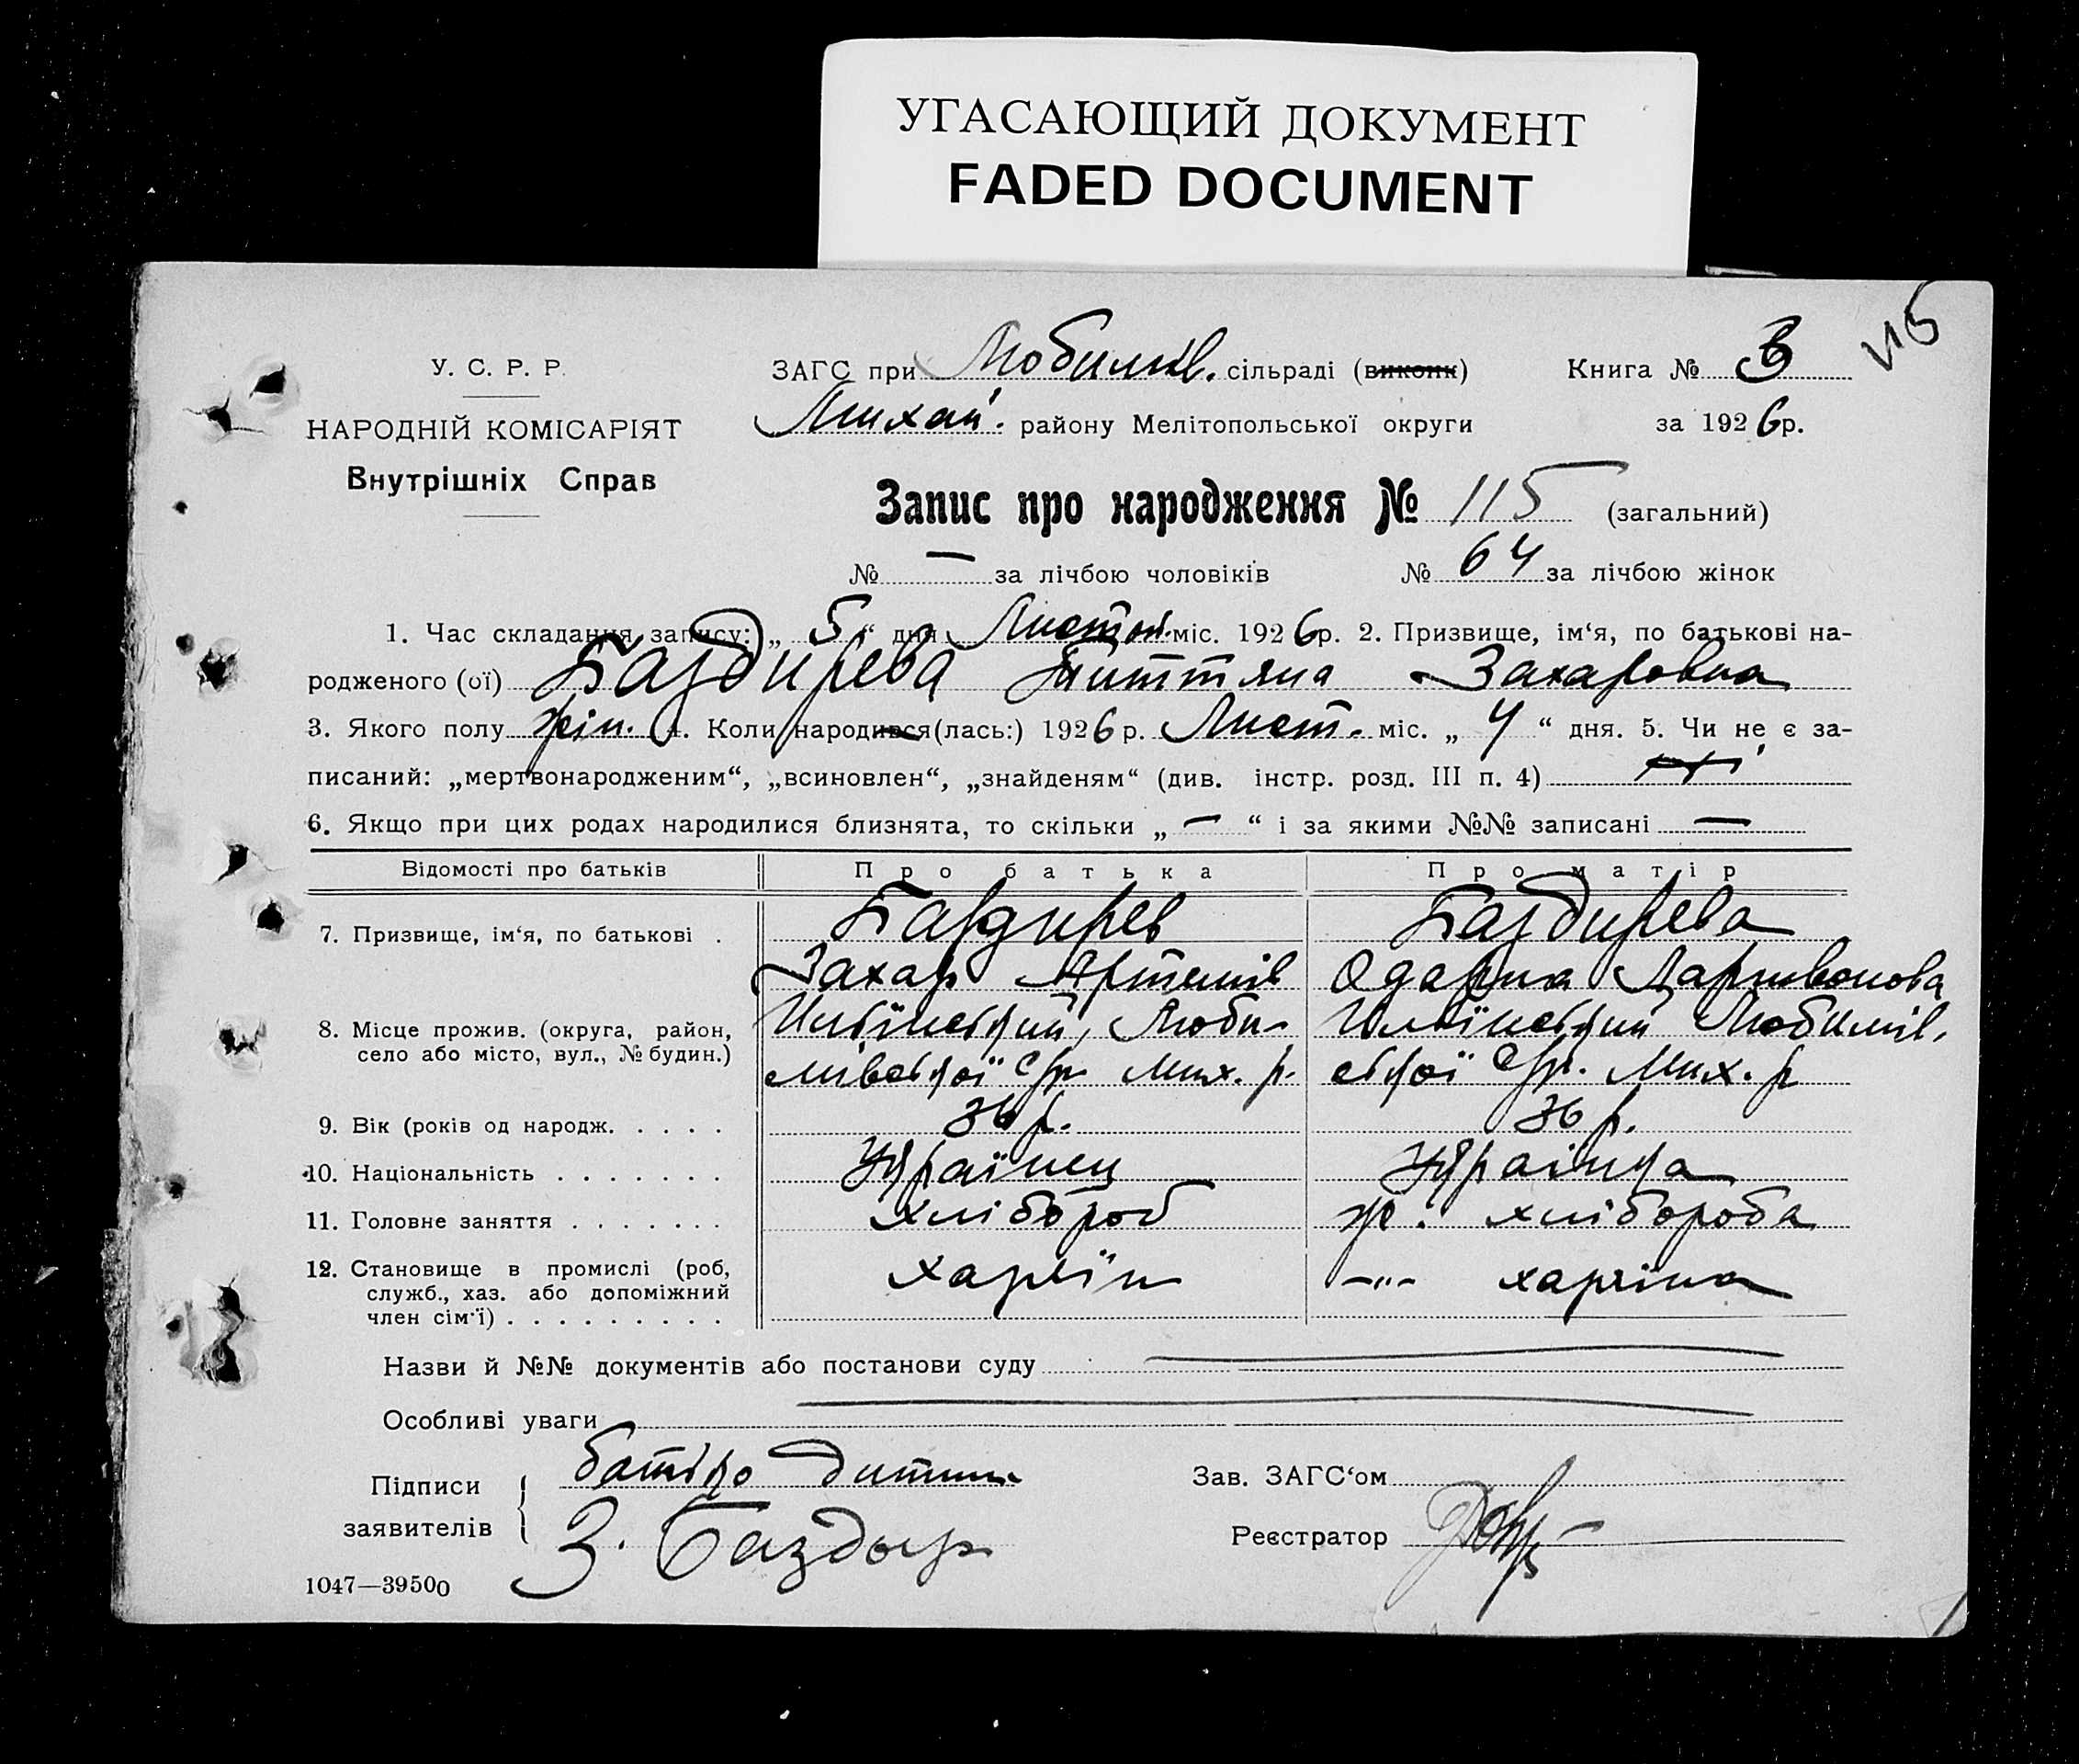 УГАСАЮЩИЙ ДОКУМЕНТ
FADED DOCUMENT
115
У. С. Р. Р.
НАРОДНІЙ КОМІСАРІЯТ
Внутрішніх Справ
ЗАГС при Любимів. сільраді (виконк)
Михай. району Мелітопольської округи
Книга № 3
за 1926р.
Запис про народження № 115 (загальний)
№ — за лічбою чоловіків № 64 за лічбою жінок
1. Час складання запису: „ 5 “ дня Листоп. міс. 1926р. 2. Призвище, ім‘я, по батькові на-
родженого (ої) Баздирева Титтяна Захаровна
3. Якого полу жін. 4. Коли народився(лась:) 1926р. Лист. міс. „ 4 “ дня. 5. Чи не є за-
писаний: „мертвонародженим“, „всиновлен“, „знайденям“ (див. інстр. розд. III п. 4)
6. Якщо при цих родах народилися близнята, то скільки „ — “ і за якими №№ записані —
Відомості про батьків Про батька Про матір
7. Призвище, ім‘я, по батькові . Баздирев Баздирева
Захар Артемів Одарка
8. Місце прожив. (округа, район, село або місто, вул., № будин.) Любимівської с/р. Мих. р. Любимівської с/р. Мих. р
9. Вік (років од народж. . . . . 36 р. 36 р.
10. Національність . . . . . . . Українец Українка
11. Головне заняття . . . . . . . хлібороб ж. хлібороба
12. Становище в промислі (роб, служб., хаз. або допоміжний член сім‘ї) . . . . . . . . . хазяїн -"- хазяїна
Назви й №№ документів або постанови суду
Особливі уваги
Підписи заявителів { батько дитини
З. Баздыр
Зав. ЗАГС‘ом
Реєстратор
1047—39500